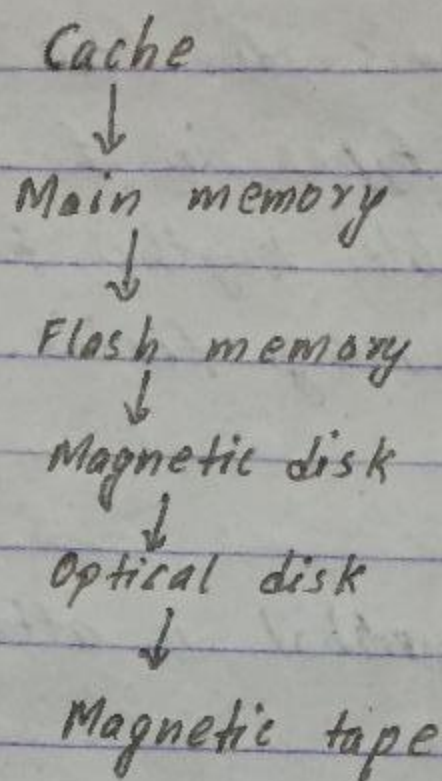 Cache
↓
Main memory
↓
Flash memory
↓
Magnetic disk
↓
Optical disk
↓
Magnetic tape